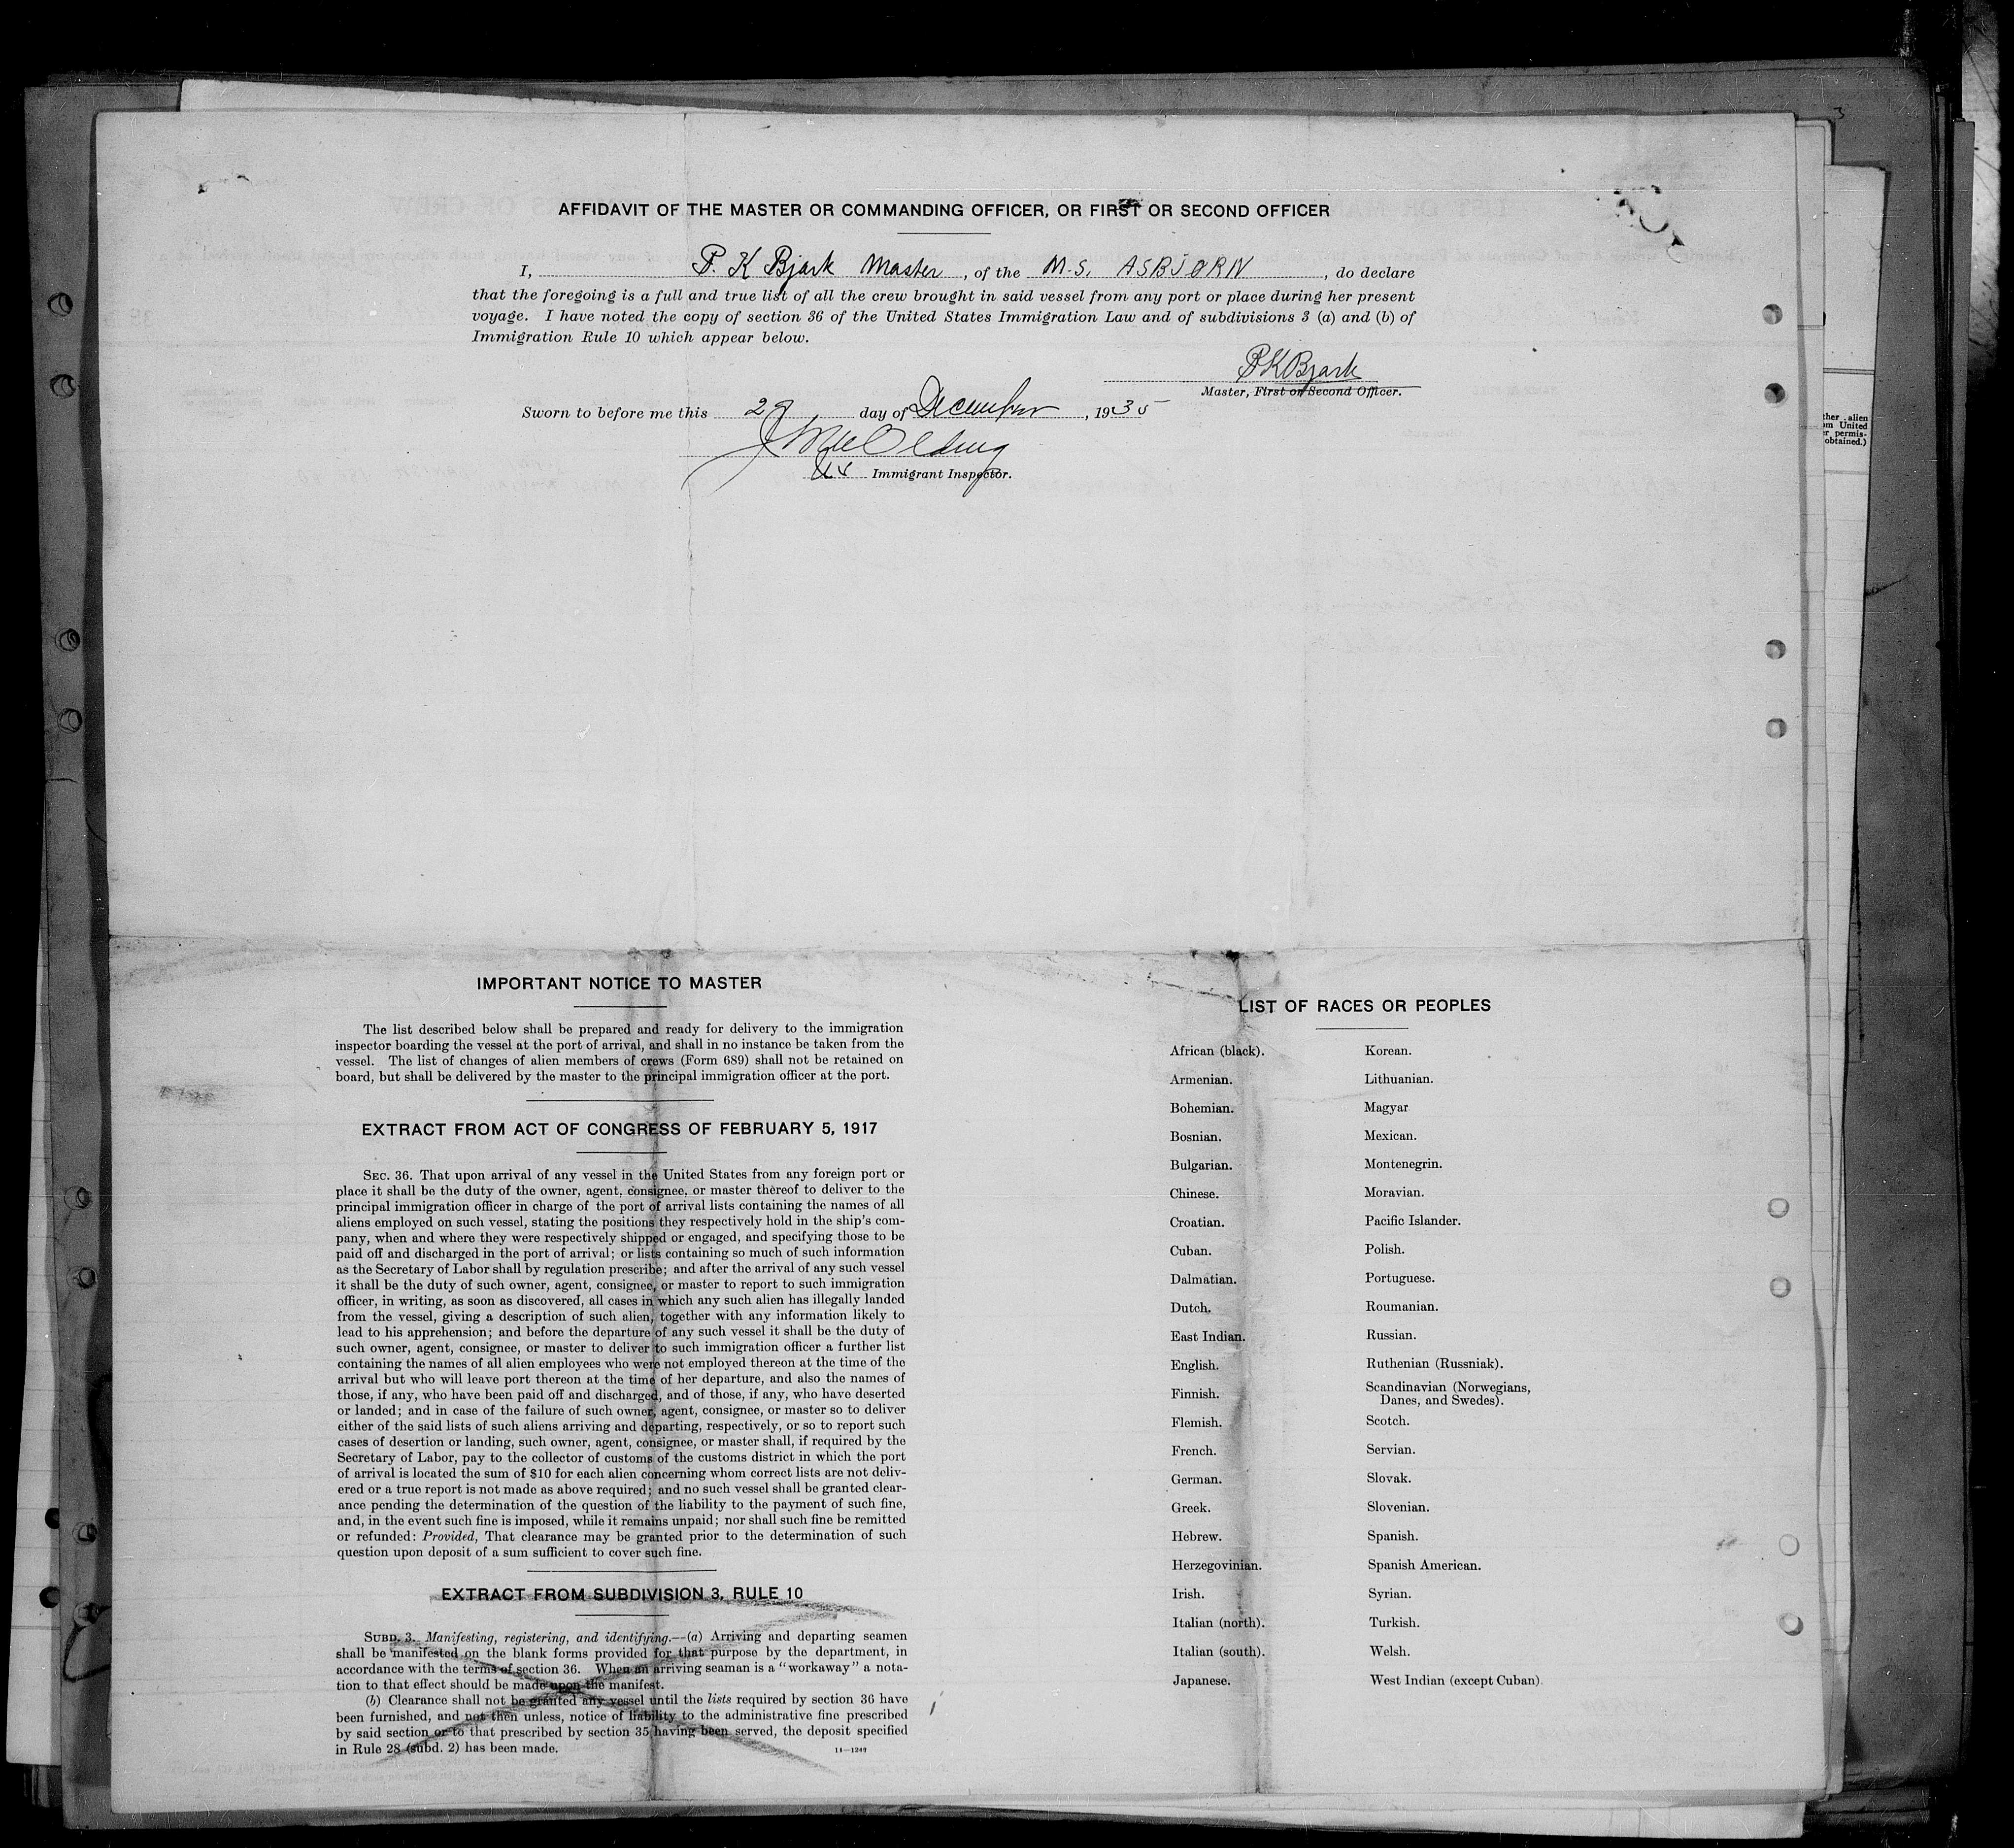 AFFIDAVIT OF THE MASTER OR COMMANDING OFFICER, OR FIRST OR SECOND OFFICER
I, P. K Bjark Master, of the M.S. ASBJORN, do declare
that the foregoing is a full and true list of all the crew brought in said vessel from any port or place during her present
voyage. I have noted the copy of section 36 of the United States Immigration Law and of subdivisions 3 (a) and (b) of
Immigration Rule 10 which appear below.
P K Bjark
Master, First or Second Officer.
Sworn to before me this 28 day of December, 1935
Immigrant Inspector.
ther alien
om United
er permis-
obtained.)
IMPORTANT NOTICE TO MASTER
The list described below shall be prepared and ready for delivery to the immigration
inspector boarding the vessel at the port of arrival, and shall in no instance be taken from the
vessel. The list of changes of alien members of crews (Form 689) shall not be retained on
board, but shall be delivered by the master to the principal immigration officer at the port.
EXTRACT FROM ACT OF CONGRESS OF FEBRUARY 5, 1917
SEC. 36. That upon arrival of any vessel in the United States from any foreign port or
place it shall be the duty of the owner, agent, consignee, or master thereof to deliver to the
principal immigration officer in charge of the port of arrival lists containing the names of all
aliens employed on such vessel, stating the positions they respectively hold in the ship's com-
pany, when and where they were respectively shipped or engaged, and specifying those to be
paid off and discharged in the port of arrival; or lists containing so much of such information
as the Secretary of Labor shall by regulation prescribe; and after the arrival of any such vessel
it shall be the duty of such owner, agent, consignee, or master to report to such immigration
officer, in writing, as soon as discovered, all cases in which any such alien has illegally landed
from the vessel, giving a description of such alien, together with any information likely to
lead to his apprehension; and before the departure of any such vessel it shall be the duty of
such owner, agent, consignee, or master to deliver to such immigration officer a further list
containing the names of all alien employees who were not employed thereon at the time of the
arrival but who will leave port thereon at the time of her departure, and also the names of
those, if any, who have been paid off and discharged, and of those, if any, who have deserted
or landed; and in case of the failure of such owner, agent, consignee, or master so to deliver
either of the said lists of such aliens arriving and departing, respectively, or so to report such
cases of desertion or landing, such owner, agent, consignee, or master shall, if required by the
Secretary of Labor, pay to the collector of customs of the customs district in which the port
of arrival is located the sum of $10 for each alien concerning whom correct lists are not deliv-
ered or a true report is not made as above required; and no such vessel shall be granted clear-
ance pending the determination of the question of the liability to the payment of such fine,
and, in the event such fine is imposed, while it remains unpaid; nor shall such fine be remitted
or refunded: Provided, That clearance may be granted prior to the determination of such
question upon deposit of a sum sufficient to cover such fine.
EXTRACT FROM SUBDIVISION 3, RULE 10
SUBD. 3. Manifesting, registering, and identifying.—(a) Arriving and departing seamen
shall be manifested on the blank forms provided for that purpose by the department, in
accordance with the terms of section 36. When an arriving seaman is a "workaway" a nota-
tion to that effect should be made upon the manifest.
(b) Clearance shall not be granted any vessel until the lists required by section 36 have
been furnished, and not then unless, notice of liability to the administrative fine prescribed
by said section or to that prescribed by section 35 having been served, the deposit specified
in Rule 28 (subd. 2) has been made.
14—1240
LIST OF RACES OR PEOPLES
African (black).
Armenian.
Bohemian.
Bosnian.
Bulgarian.
Chinese.
Croatian.
Cuban.
Dalmatian.
Dutch.
East Indian.
English.
Finnish.
Flemish.
French.
German.
Greek.
Hebrew.
Herzegovinian.
Irish.
Italian (north).
Italian (south).
Japanese.
Korean.
Lithuanian.
Magyar
Mexican.
Montenegrin.
Moravian.
Pacific Islander.
Polish.
Portuguese.
Roumanian.
Russian.
Ruthenian (Russniak).
Scandinavian (Norwegians,
Danes, and Swedes).
Scotch.
Servian.
Slovak.
Slovenian.
Spanish.
Spanish American.
Syrian.
Turkish.
Welsh.
West Indian (except Cuban).